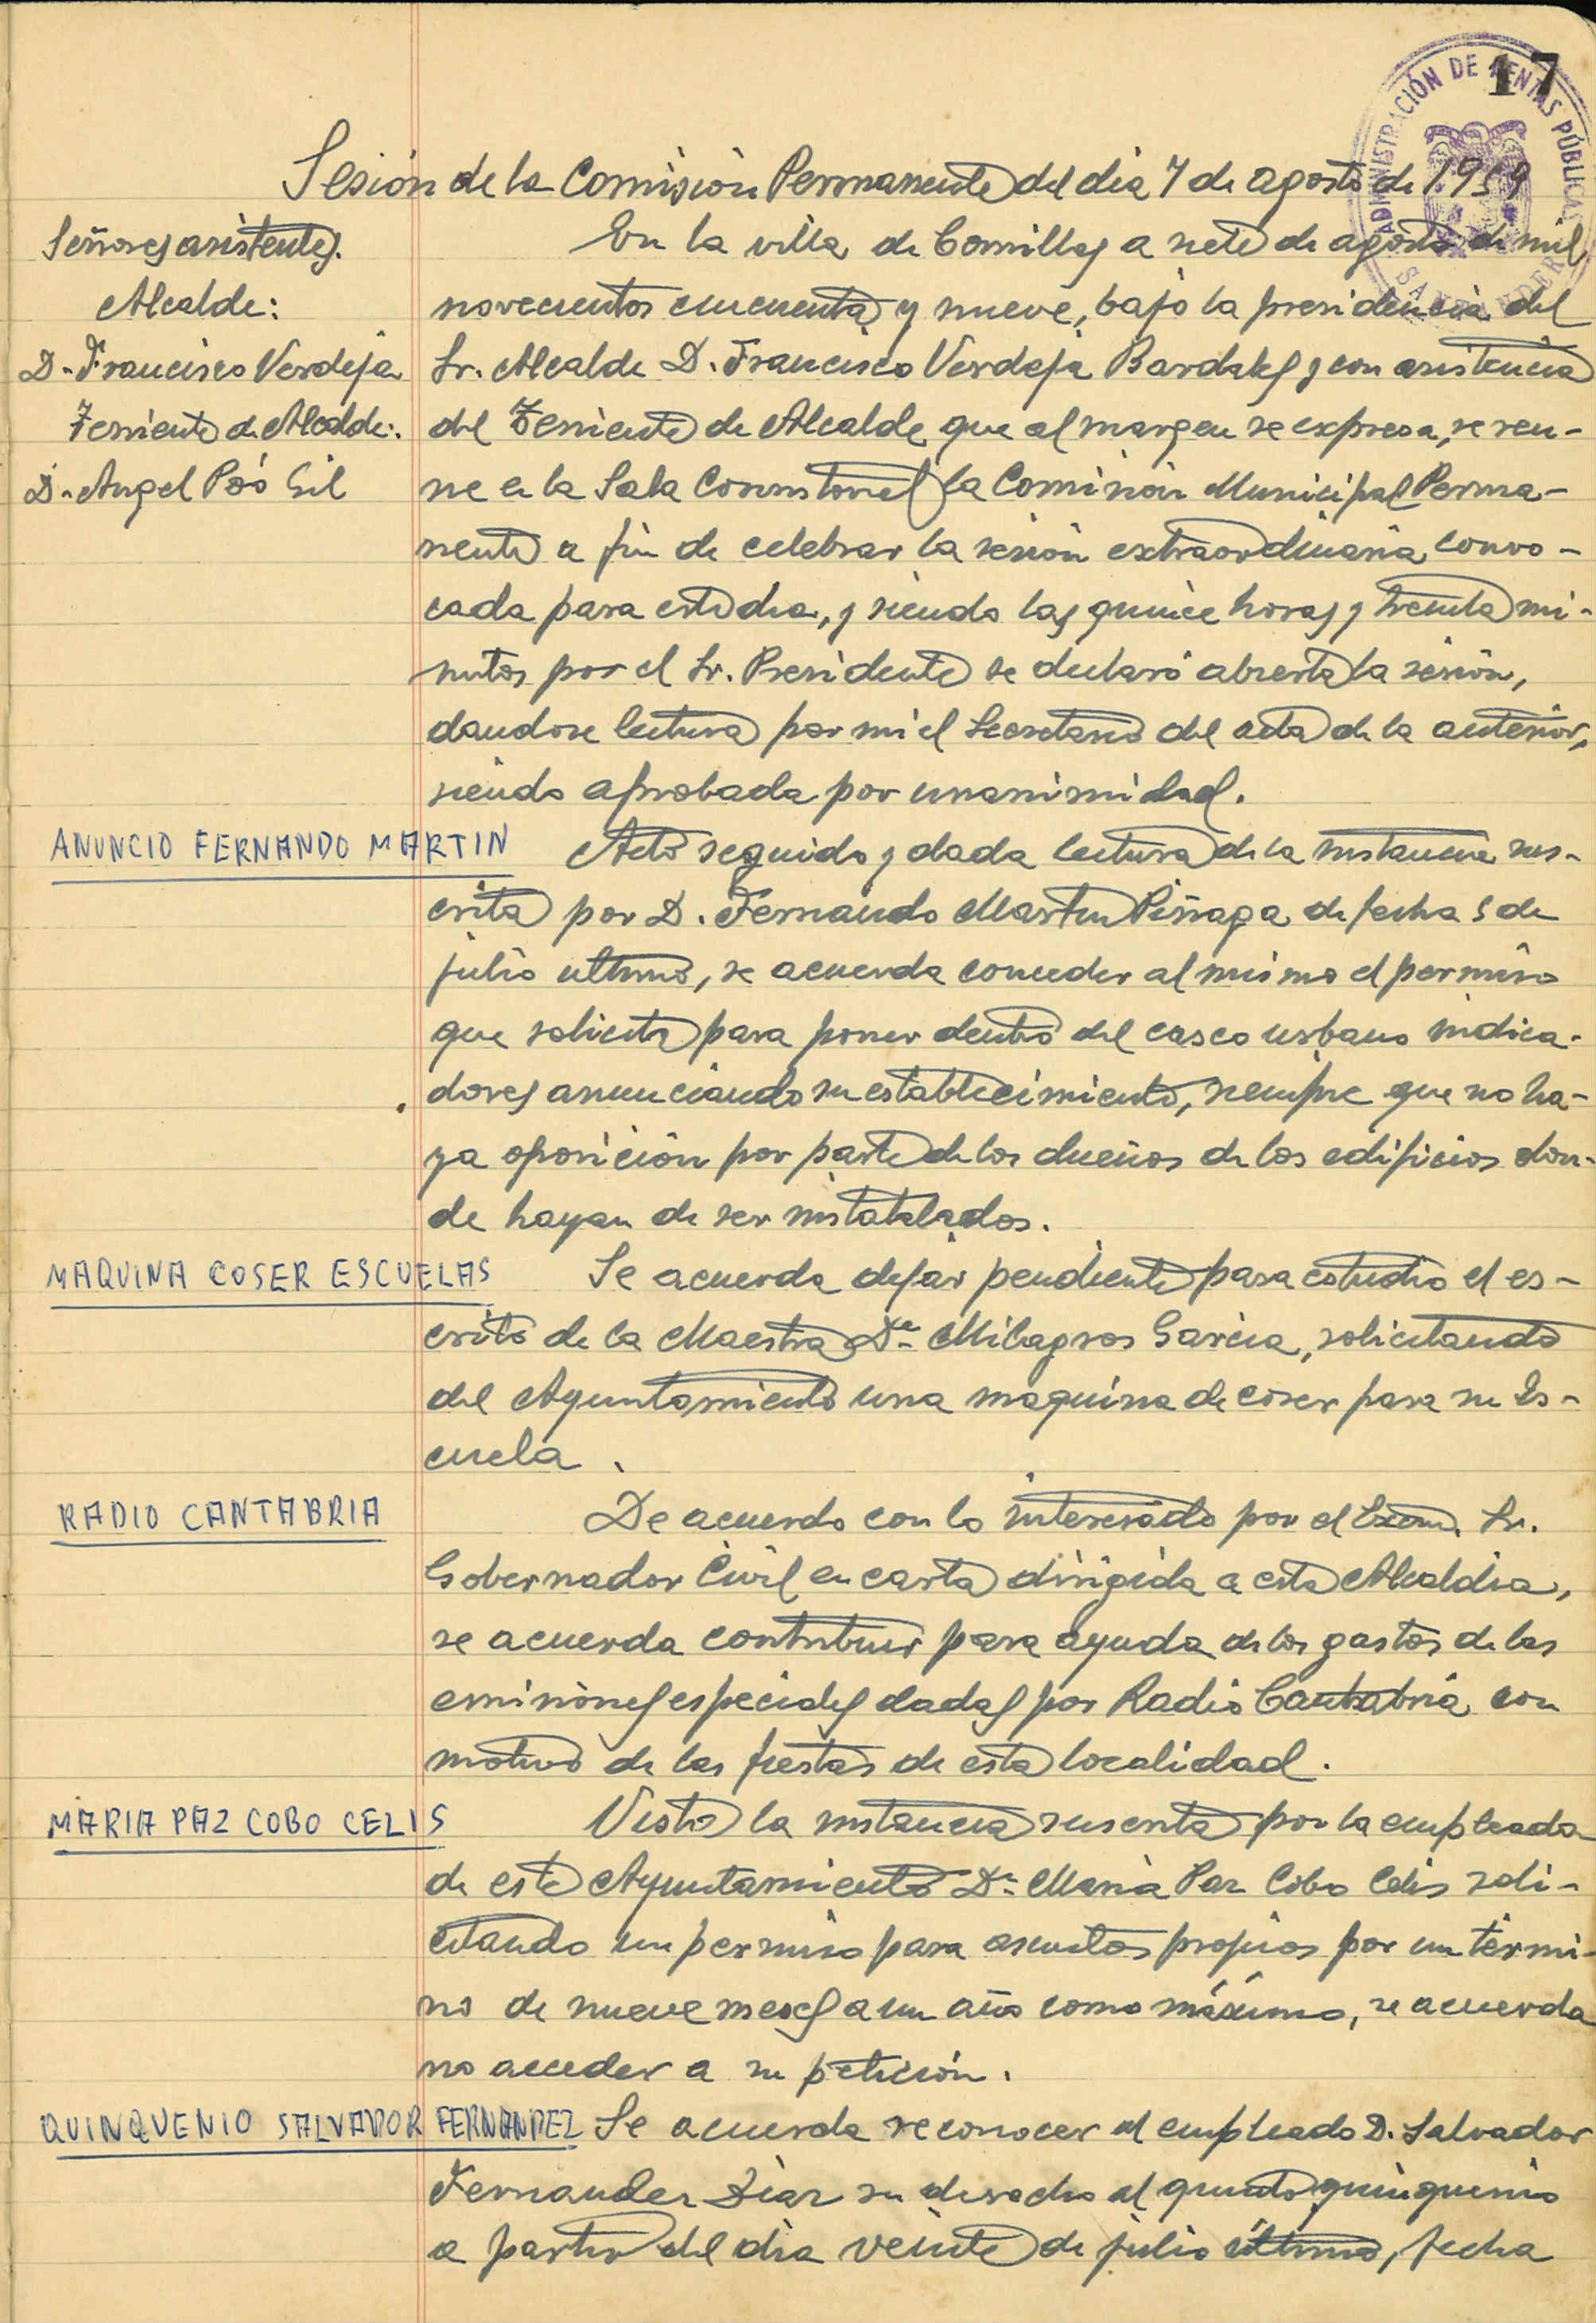 17
ADMINISTRACIÓN DE RENTAS PÚBLICAS
SANTANDER
Sesión de la Comisión Permanente del dia 7 de agosto de 1959
Señores asistentes.
Alcalde:
D. Francisco Verdeja
Teniente de Alcalde:
D. Angel Póo Gil
En la villa de Comillas a siete de agosto de mil
novecientos cincuenta y nueve, bajo la presidencia del
Sr. Alcalde D. Francisco Verdeja Bardales y con asistencia
del Teniente de Alcalde que al margen se expresa, se reu-
ne en la Sala Consistorial la Comisión Municipal Perma-
nente a fin de celebrar la sesión extraordinaria convo-
cada para este dia, y siendo las quince horas y treinta mi-
nutos por el Sr. Presidente se declaró abierta la sesión,
dandose lectura por mi el Secretario del acta de la anterior,
siendo aprobada por unanimidad.
ANUNCIO FERNANDO MARTIN
Acto seguido y dada lectura de la instancia sus-
crita por D. Fernando Martin Piñaga de fecha 5 de
julio ultimo, se acuerda conceder al mismo el permiso
que solicita para poner dentro del casco urbano indica-
dores anunciando su establecimiento, siempre que no ha-
ya oposición por parte de los dueños de los edificios don-
de hayan de ser instatalados.
MAQUINA COSER ESCUELAS
Se acuerda dejar pendiente para estudio el es-
crito de la Maestra Dª Milagros Garcia, solicitando
del Ayuntamiento una maquina de coser para su Es-
cuela.
RADIO CANTABRIA
De acuerdo con lo interesado por el Excmo. Sr.
Gobernador Civil en carta dirigida a esta Alcaldia,
se acuerda contribuir para ayuda de los gastos de las
emisiones especiales dadas por Radio Cantabria con
motivo de las fiestas de esta localidad.
MARIA PAZ COBO CELIS
Vista la instancia suscrita por la empleada
de este Ayuntamiento Dª Maria Paz Cobo Celis soli-
citando un permiso para asuntos propios por un térmi-
no de nueve meses a un año como máximo, se acuerda
no acceder a su petición.
QUINQUENIO SALVADOR FERNANDEZ
Se acuerda reconocer al empleado D. Salvador
Fernandez Diaz su derecho al quinto quinquenio
a partir del dia veinte de julio último, fecha